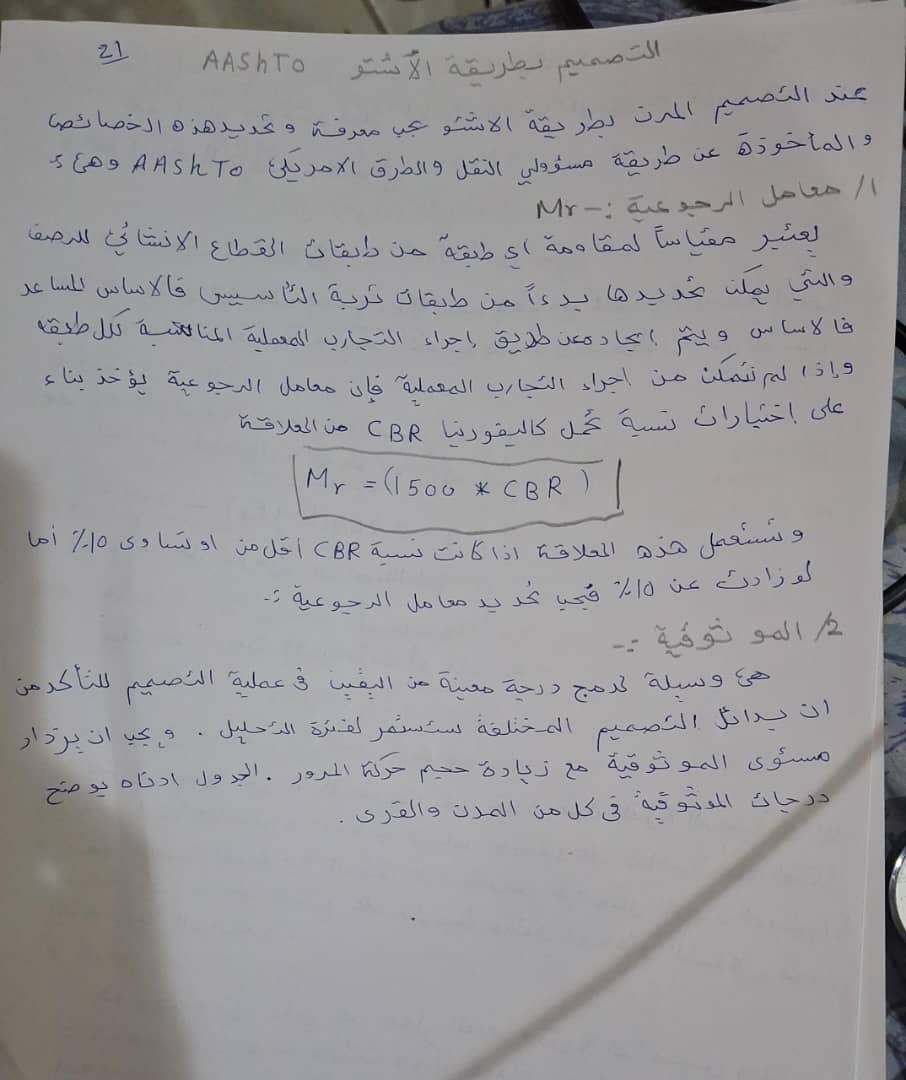 21
التصميم بطريقة الأشتو AAShTO
عند التصميم المرن بطريقة الاشتو يجب معرفة وتحديد هذه الخصائص
والمأخوذة عن طريقة مسؤولي النقل والطرق الامريكي AAShTO وهي :
1/ معامل الرجوعية :- Mr
يعتبر مقياساً لمقاومة اي طبقة من طبقات القطاع الانشائي للرصف
والتي يمكن تحديدها بدءاً من طبقات تربة التأسيس فالاساس المساعد
فالاساس ويتم إيجاده عن طريق إجراء التجارب المعملية المناسبة لكل طبقه
وإذا لم نتمكن من اجراء التجارب المعملية فإن معامل الرجوعية يؤخذ بناء
على إختبارات نسبة تحمل كاليفورنيا CBR من العلاقة
Mr = (1500 * CBR )
وتستعمل هذه العلاقة اذا كانت نسبة CBR أقل من او تساوى 10% أما
لو زادت عن 10% فيجب تحديد معامل الرجوعية :-
2/ الموثوقية :-
هي وسيلة لدمج درجة معينة من اليقين في عملية التصميم للتأكد من
ان بدائل التصميم المختلفة ستستمر لفترة التحليل . ويجب ان يزداد
مستوى الموثوقية مع زيادة حجم حركة المرور . الجدول ادناه يوضح
درجات الموثوقية في كل من المدن والقرى .